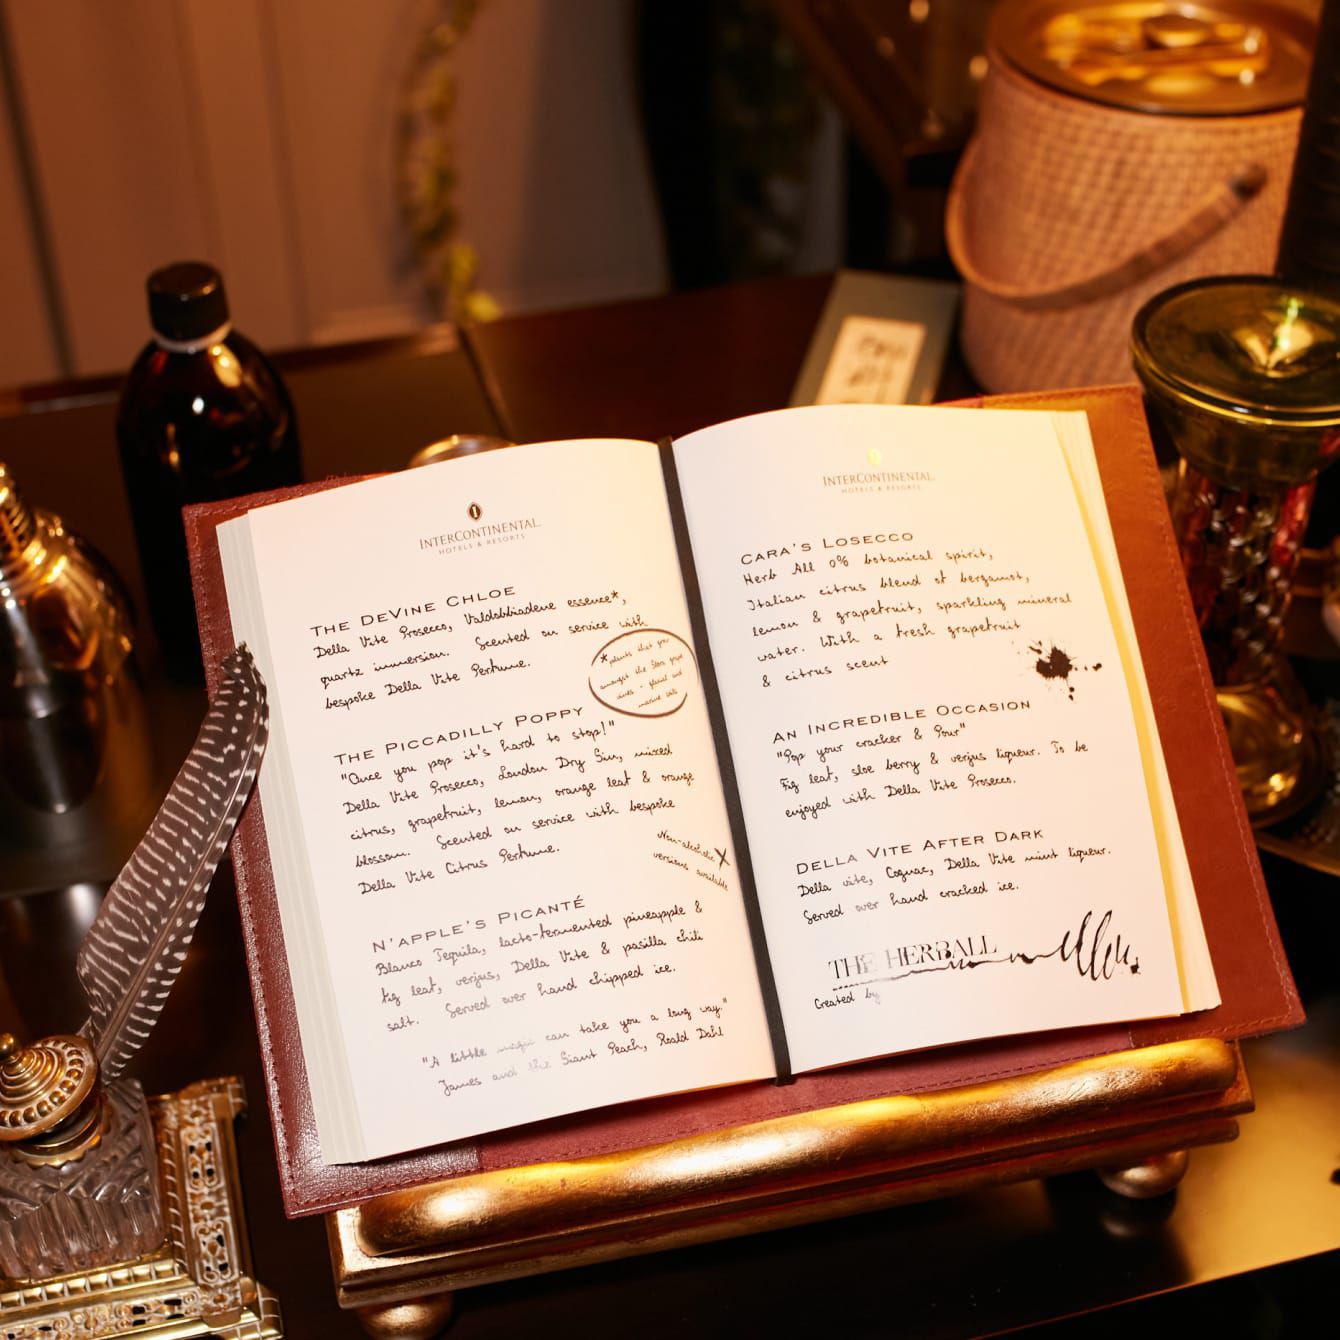 INTERCONTINENTAL
HOTELS & RESORTS
THE DEVINE CHLOE
Della Vite Prosecco, Valdobbiadene essence*,
quartz immersion. Scented on service with
bespoke Della Vite Perfume.
*plants that grow
amongst the Glera grape
vines - glacial and
marine
THE PICCADILLY POPPY
"Once you pop it's hard to stop!"
Della Vite Prosecco, London Dry Gin, mixed
citrus, grapefruit, lemon, orange leaf & orange
blossom. Scented on service with bespoke
Della Vite Citrus Perfume.
Non-alcoholic
versions available
N'APPLE'S PICANTÉ
Blanco Tequila, lacto-fermented pineapple &
fig leaf, verjus, Della Vite & pasilla chili
salt. Served over hand chipped ice.
"A little magic can take you a long way."
James and the Giant Peach, Roald Dahl
INTERCONTINENTAL
HOTELS & RESORTS
CARA'S LOSECCO
Herb All 0% botanical spirit,
Italian citrus blend of bergamot,
lemon & grapefruit, sparkling mineral
water. With a fresh grapefruit
& citrus scent
AN INCREDIBLE OCCASION
"Pop your cracker & Pour"
Fig leaf, sloe berry & verjus liqueur. To be
enjoyed with Della Vite Prosecco.
DELLA VITE AFTER DARK
Della vite, Cognac, Della Vite mint liqueur.
Served over hand cracked ice.
THE HERBALL
Created by